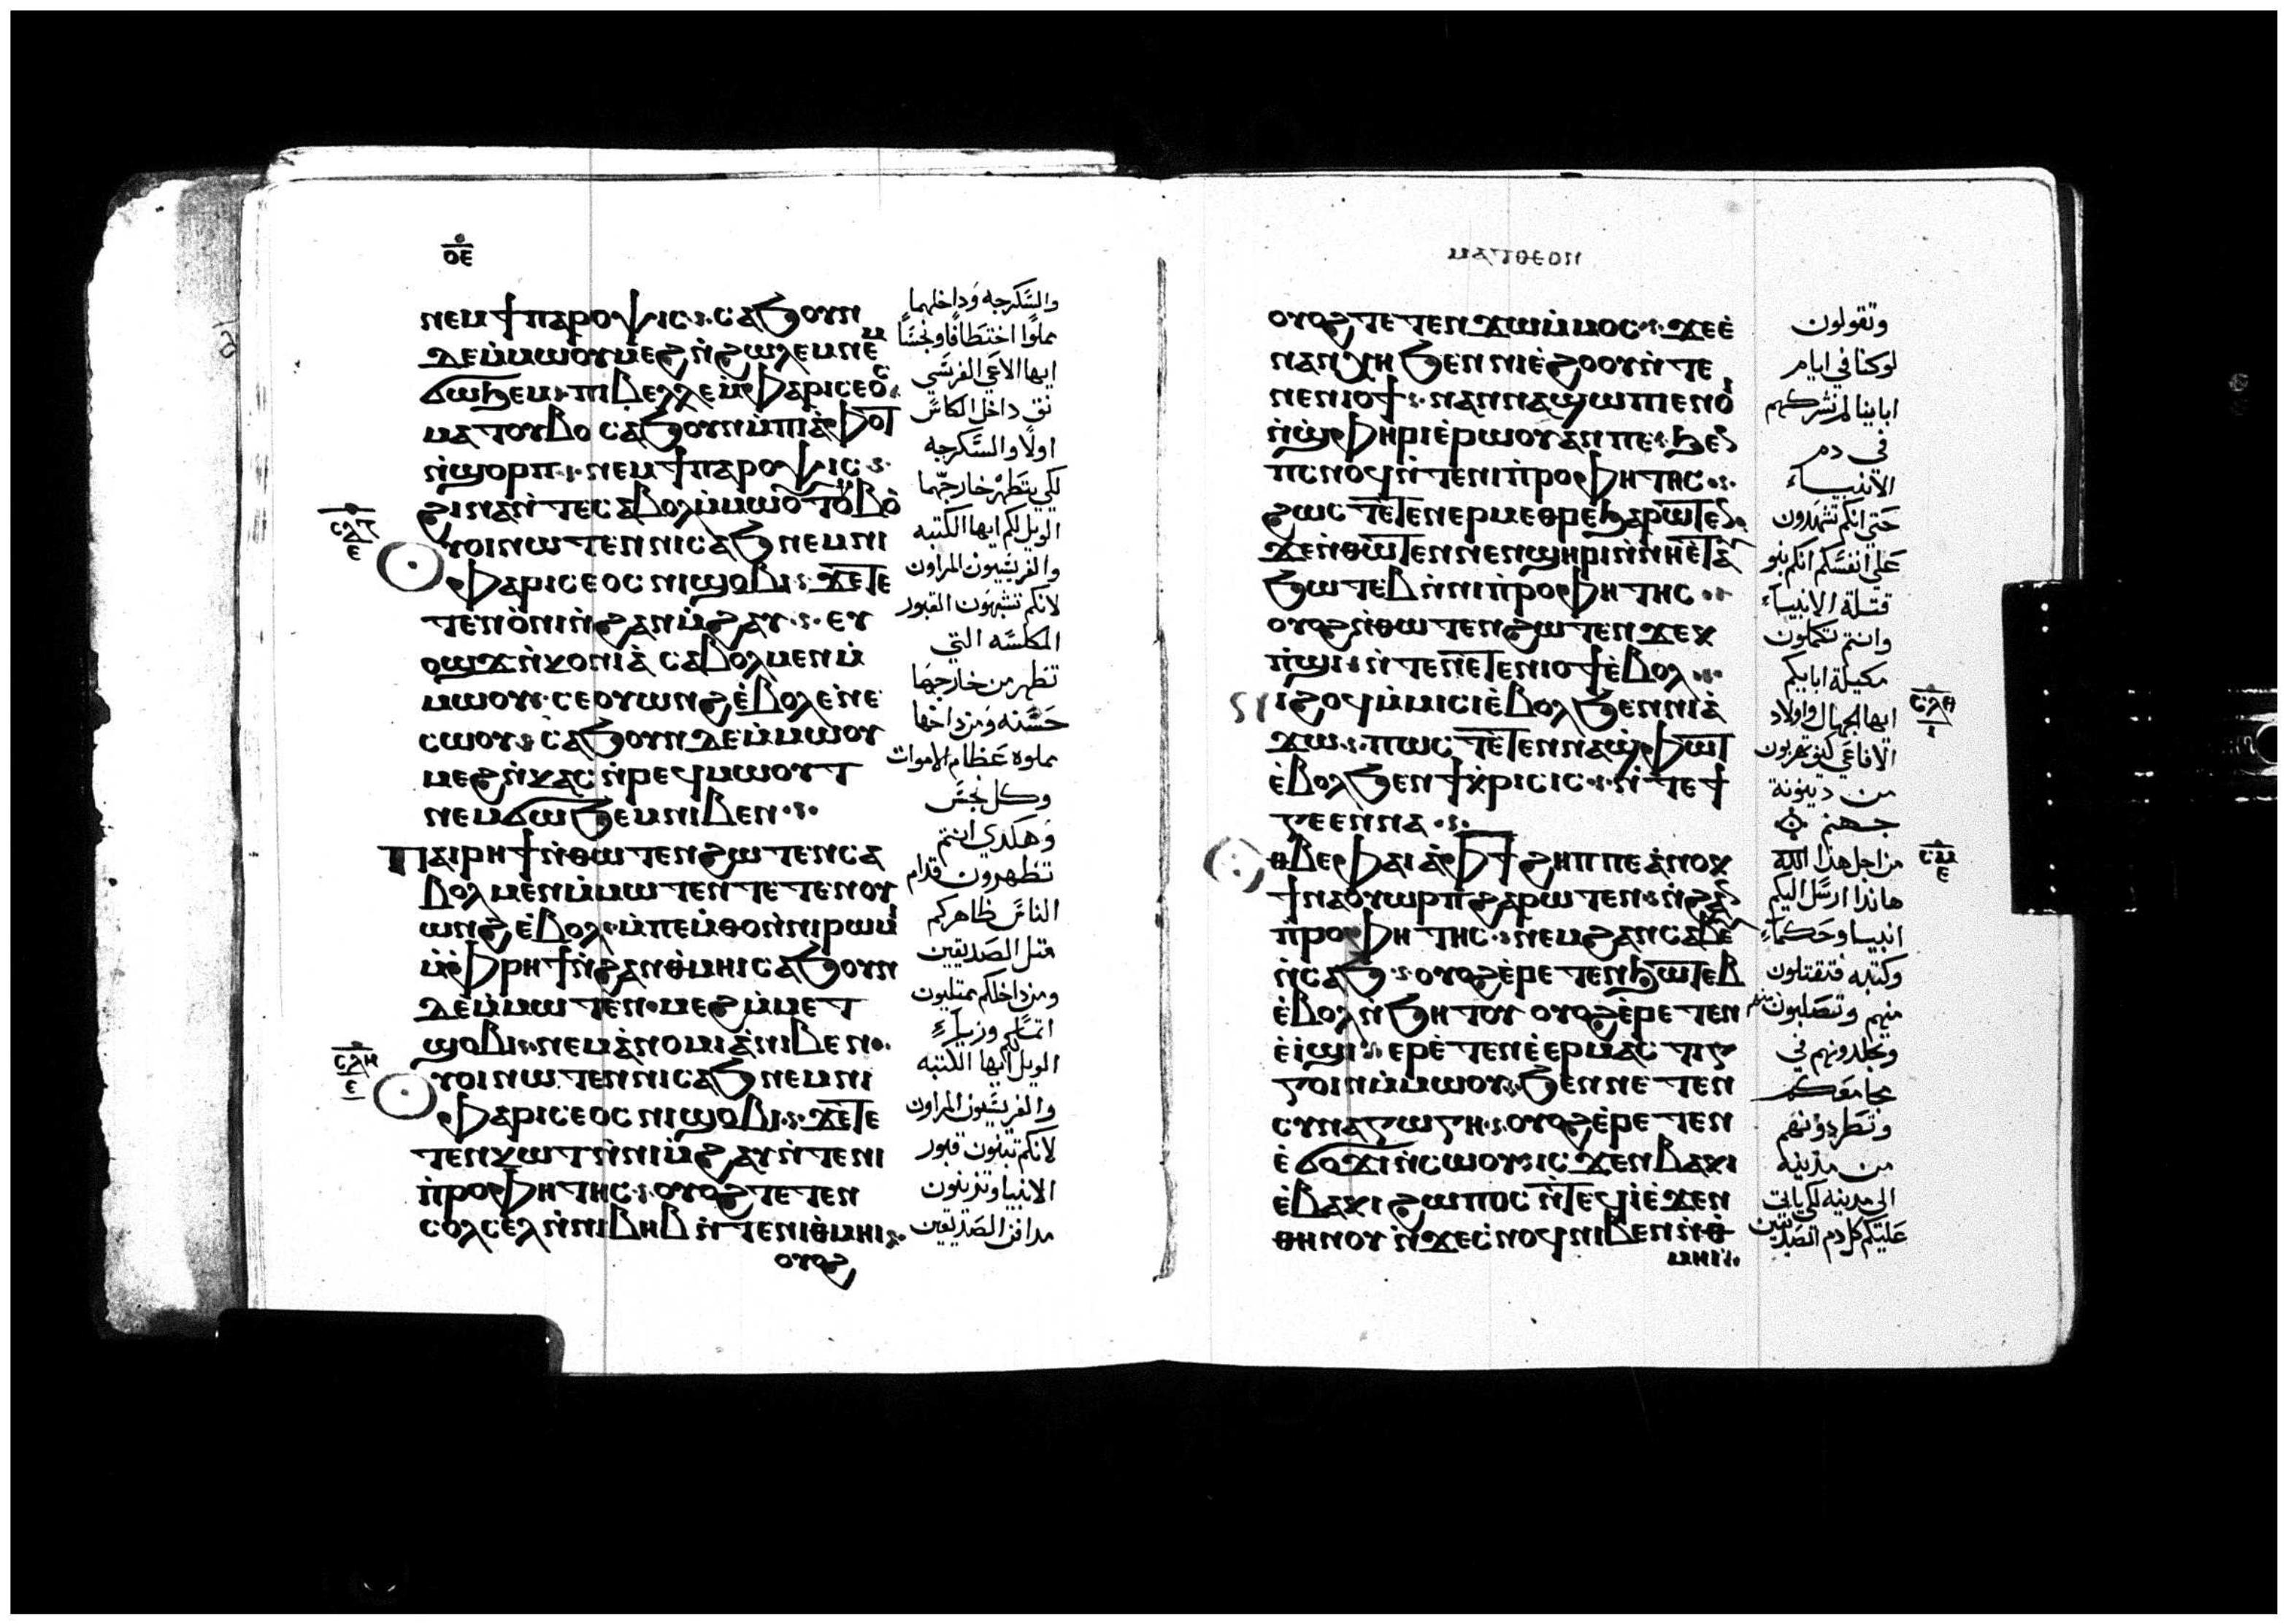 ⲟⲉ
ⲛⲉⲙϯⲡⲁⲣⲟⲯⲓⲥ ⲥⲁϧⲟⲩⲛ
ⲇⲉⲙ̇ⲙⲱⲟⲩⲙⲉϩⲛ̇ϩⲱⲗⲉⲙⲛⲉⲙ
ϭⲱϧⲉⲙ ⲡⲓⲃⲉⲗⲗⲉⲙ̇ⲫⲁⲣⲓⲥⲉⲟⲥ
ⲙⲁⲧⲟⲩⲃⲟ ⲥⲁϧⲟⲩⲛⲙ̇ⲡⲓⲁ̇ⲫⲟⲧ
ⲛ̇ϣⲟⲣⲡ ⲛⲉⲙϯⲡⲁⲣⲟⲯⲓⲥ
ϩⲓⲛⲁⲛ̇ⲧⲉⲥⲁⲃⲟⲗⲙ̇ⲙⲱⲟⲩⲧⲟⲩⲃⲟ
ⲥⲗⲍ
ⲉ
ⲟⲩⲟⲓⲛⲱⲧⲉⲛⲛⲓⲥⲁϧⲛⲉⲙⲛⲓ
ⲫⲁⲣⲓⲥⲉⲟⲥ ⲛⲓϣⲟⲃⲓ ϫⲉⲧⲉ
ⲧⲉⲛⲟ̇ⲛⲓⲛ̇ϩⲁⲛⲙ̇ϩⲁⲩ ⲉⲩ
ⲟϣϫⲛ̇ⲕⲟⲛⲓⲁ̇ ⲥⲁⲃⲟⲗⲙⲉⲛⲙ̇
ⲙⲱⲟⲩ ⲥⲉⲟⲩⲱⲛϩⲉ̇ⲃⲟⲗⲉ̇ⲛⲉ
ⲥⲱⲟⲩ ⲥⲁϧⲟⲩⲛⲇⲉⲙ̇ⲙⲱⲟⲩ
ⲙⲉϩⲛ̇ⲕⲁⲥⲛ̇ⲣⲉϥⲙⲱⲟⲩⲧ
ⲛⲉⲙϭⲱϧⲉⲙⲛⲓⲃⲉⲛ
ⲡⲁⲓⲣⲏϯⲛ̇ⲑⲱⲧⲉⲛϩⲱⲧⲉⲛⲥⲁ
ⲃⲟⲗⲙⲉⲛⲙ̇ⲙⲱⲧⲉⲛⲧⲉⲧⲉⲛⲟⲩ
ⲱⲛϩⲉ̇ⲃⲟⲗ ⲙ̇ⲡⲉⲙ̇ⲑⲟⲛ̇ⲛⲓⲣⲱⲙⲓ
ⲙ̇ⲫⲣⲏϯⲛ̇ϩⲁⲛⲑ̇ⲙⲏⲓⲥⲁϧⲟⲩⲛ
ⲇⲉⲙ̇ⲙⲱⲧⲉⲛ ⲙⲉϩⲙ̇ⲙⲉⲧ
ϣⲟⲃⲓ ⲛⲉⲙⲁ̇ⲛⲟⲙⲓⲁ̇ⲛⲓⲃⲉⲛ
ⲥⲗⲏ
ⲉ
ⲟⲩⲟⲓⲛⲱⲧⲉⲛⲛⲓⲥⲁϧⲛⲉⲙⲛⲓ
ⲫⲁⲣⲓⲥⲉⲟⲥ ⲛⲓϣⲟⲃⲓ ϫⲉⲧⲉ
ⲧⲉⲛⲕⲱⲧⲛ̇ⲛⲓⲙ̇ϩⲁⲩⲛ̇ⲧⲉⲛⲓ
ⲡ̇ⲣⲟⲫⲏⲧⲏⲥ ⲟⲩⲟϩⲧⲉⲧⲉⲛ
ⲥⲟⲗⲥⲉⲗⲛ̇ⲛⲓⲃⲏⲃⲛ̇ⲧⲉⲛⲓⲑ̇ⲙⲏⲓ
ⲟⲩⲟϩ
والسكرجه وداخلهما
مملوا اختطافا ونجسا
ايها الاعمي الفريسي
نق داخل الكاس
اولا والسكرجه
لكي يتطهر خارجهما
الويل لكم ايها الكتبه
والفريسيون المراون
لانكم تشبهون القبور
المكلسه التي
تظهر من خارجها
حسنه ومن داخلها
مملوه عظام الاموات
وكل نجس
وهكذي انتم
تظهرون قدام
الناس ظاهركم
مثل الصديقين
ومن داخلكم ممتليون
اثما ورياء
الويل لكم ايها الكتبه
والفريسيون المراون
لانكم تبنون قبور
الانبيا وتزينون
مدافن الصديقين
ⲟⲩⲟϩⲧⲉⲧⲉⲛϫⲱⲙ̇ⲙⲟⲥ ϫⲉⲉ̇
ⲛⲁⲛⲭⲏϧⲉⲛⲛⲓⲉ̇ϩⲟⲟⲩⲛ̇ⲧⲉ
ⲛⲉⲛⲓⲟϯ ⲛⲁⲛⲛⲁϣⲱⲡⲓⲉⲛⲟⲓ
ⲛ̇ϣⲫⲏⲣⲓⲉ̇ⲣⲱⲟⲩⲁⲛⲡⲉ ϧⲉⲛ
ⲡⲥⲛⲟϥⲛ̇ⲧⲉⲛⲓⲡ̇ⲣⲟⲫⲏⲧⲏⲥ
ϩⲱⲥⲧⲉⲧⲉⲛⲉⲣⲙⲉⲑⲣⲉϧⲁⲣⲱⲧⲉⲛ
ϫⲉⲛ̇ⲑⲱⲧⲉⲛⲛⲉⲛϣⲏⲣⲓⲛ̇ⲛⲏⲉ̇ⲧⲁⲩ
ϧⲱⲧⲉⲃⲛ̇ⲛⲓⲡ̇ⲣⲟⲫⲏⲧⲏⲥ
ⲟⲩⲟϩⲛ̇ⲑⲱⲧⲉⲛϩⲱⲧⲉⲛϫⲉⲕ
ⲡ̇ϣⲓ ⲛ̇ⲧⲉⲛⲉⲧⲉⲛⲓⲟϯⲉ̇ⲃⲟⲗ
ⲓϩⲟϥⲙ̇ⲙⲓⲥⲓⲉ̇ⲃⲟⲗϧⲉⲛⲛⲓⲁ̇
ϫⲱ ⲡⲱⲥ ⲧⲉⲧⲉⲛⲛⲁϣⲫⲱⲧ
ⲉ̇ⲃⲟⲗϧⲉⲛϯⲕ̇ⲣⲓⲥⲓⲥ ⲛ̇ⲧⲉϯ
ⲅⲉⲉⲛⲛⲁ
ⲉⲑⲃⲉⲫⲁⲓⲁ̇ⲫϯϩⲏⲡⲡⲉⲁ̇ⲛⲟⲕ
ϯⲛⲁⲟⲩⲱⲣⲡϩⲁⲣⲱⲧⲉⲛ ⲛ̇ϩⲁⲛ
ⲡ̇ⲣⲟⲫⲏⲧⲏⲥ ⲛⲉⲙϩⲁⲛⲥⲁⲃⲉⲩ
ⲛ̇ⲥⲁϧ ⲟⲩⲟϩⲉ̇ⲣⲉⲧⲉⲛϧⲱⲧⲉⲃ
ⲉ̇ⲃⲟⲗⲛ̇ϧⲏⲧⲟⲩ ⲟⲩⲟϩⲉ̇ⲣⲉⲧⲉⲛ
ⲉ̇ⲓ̇ϣⲓ ⲉⲣⲉ̇ⲧⲉⲛⲉ̇ⲉⲣⲙⲁⲥⲧⲓⲅ
ⲅⲟⲓⲛⲙ̇ⲙⲱⲟⲩ ϧⲉⲛⲛⲉⲧⲉⲛ
ⲥⲩⲛⲁⲅⲱⲅⲏ ⲟⲩⲟϩⲉ̇ⲣⲉⲧⲉⲛ
ⲉ̇ϭⲟϫⲓⲛ̇ⲥⲱⲟⲩ ⲓⲥϫⲉⲛⲃⲁⲕⲓ
ⲉ̇ⲃⲁⲕⲓ ϩⲱⲡⲟⲥ ⲛ̇ⲧⲉϥⲓ̇ⲉ̇ϫⲉⲛ
ⲑⲏⲛⲟⲩ ⲛ̇ϫⲉⲥ̇ⲛⲟϥⲛⲓⲃⲉⲛⲛ̇ⲑ̇
ⲙⲏⲓ
وتقولون
لو كنا في ايام
ابائنا لم نشركهم
في دم
الانبياء
حتي انكم تشهدون
علي انفسكم انكم بنو
قتلة الانبياء
وانتم تكملون
مكيلة ابايكم
ⲥⲗⲏ
ايها الجهال واولاد
الافاعي كيف تهربون
من دينونة
جهنم
من اجل هذا الله
ⲥⲙ
ⲉ
هاندا ارسل اليكم
انبيا وحكماء
وكتبه فتقتلون
منهم وتصلبون منهم
وتجلدونهم في
مجامعكم
وتطردونهم
من مدينه
الي مدينه لكي ياتي
عليكم كل دم الصديقين